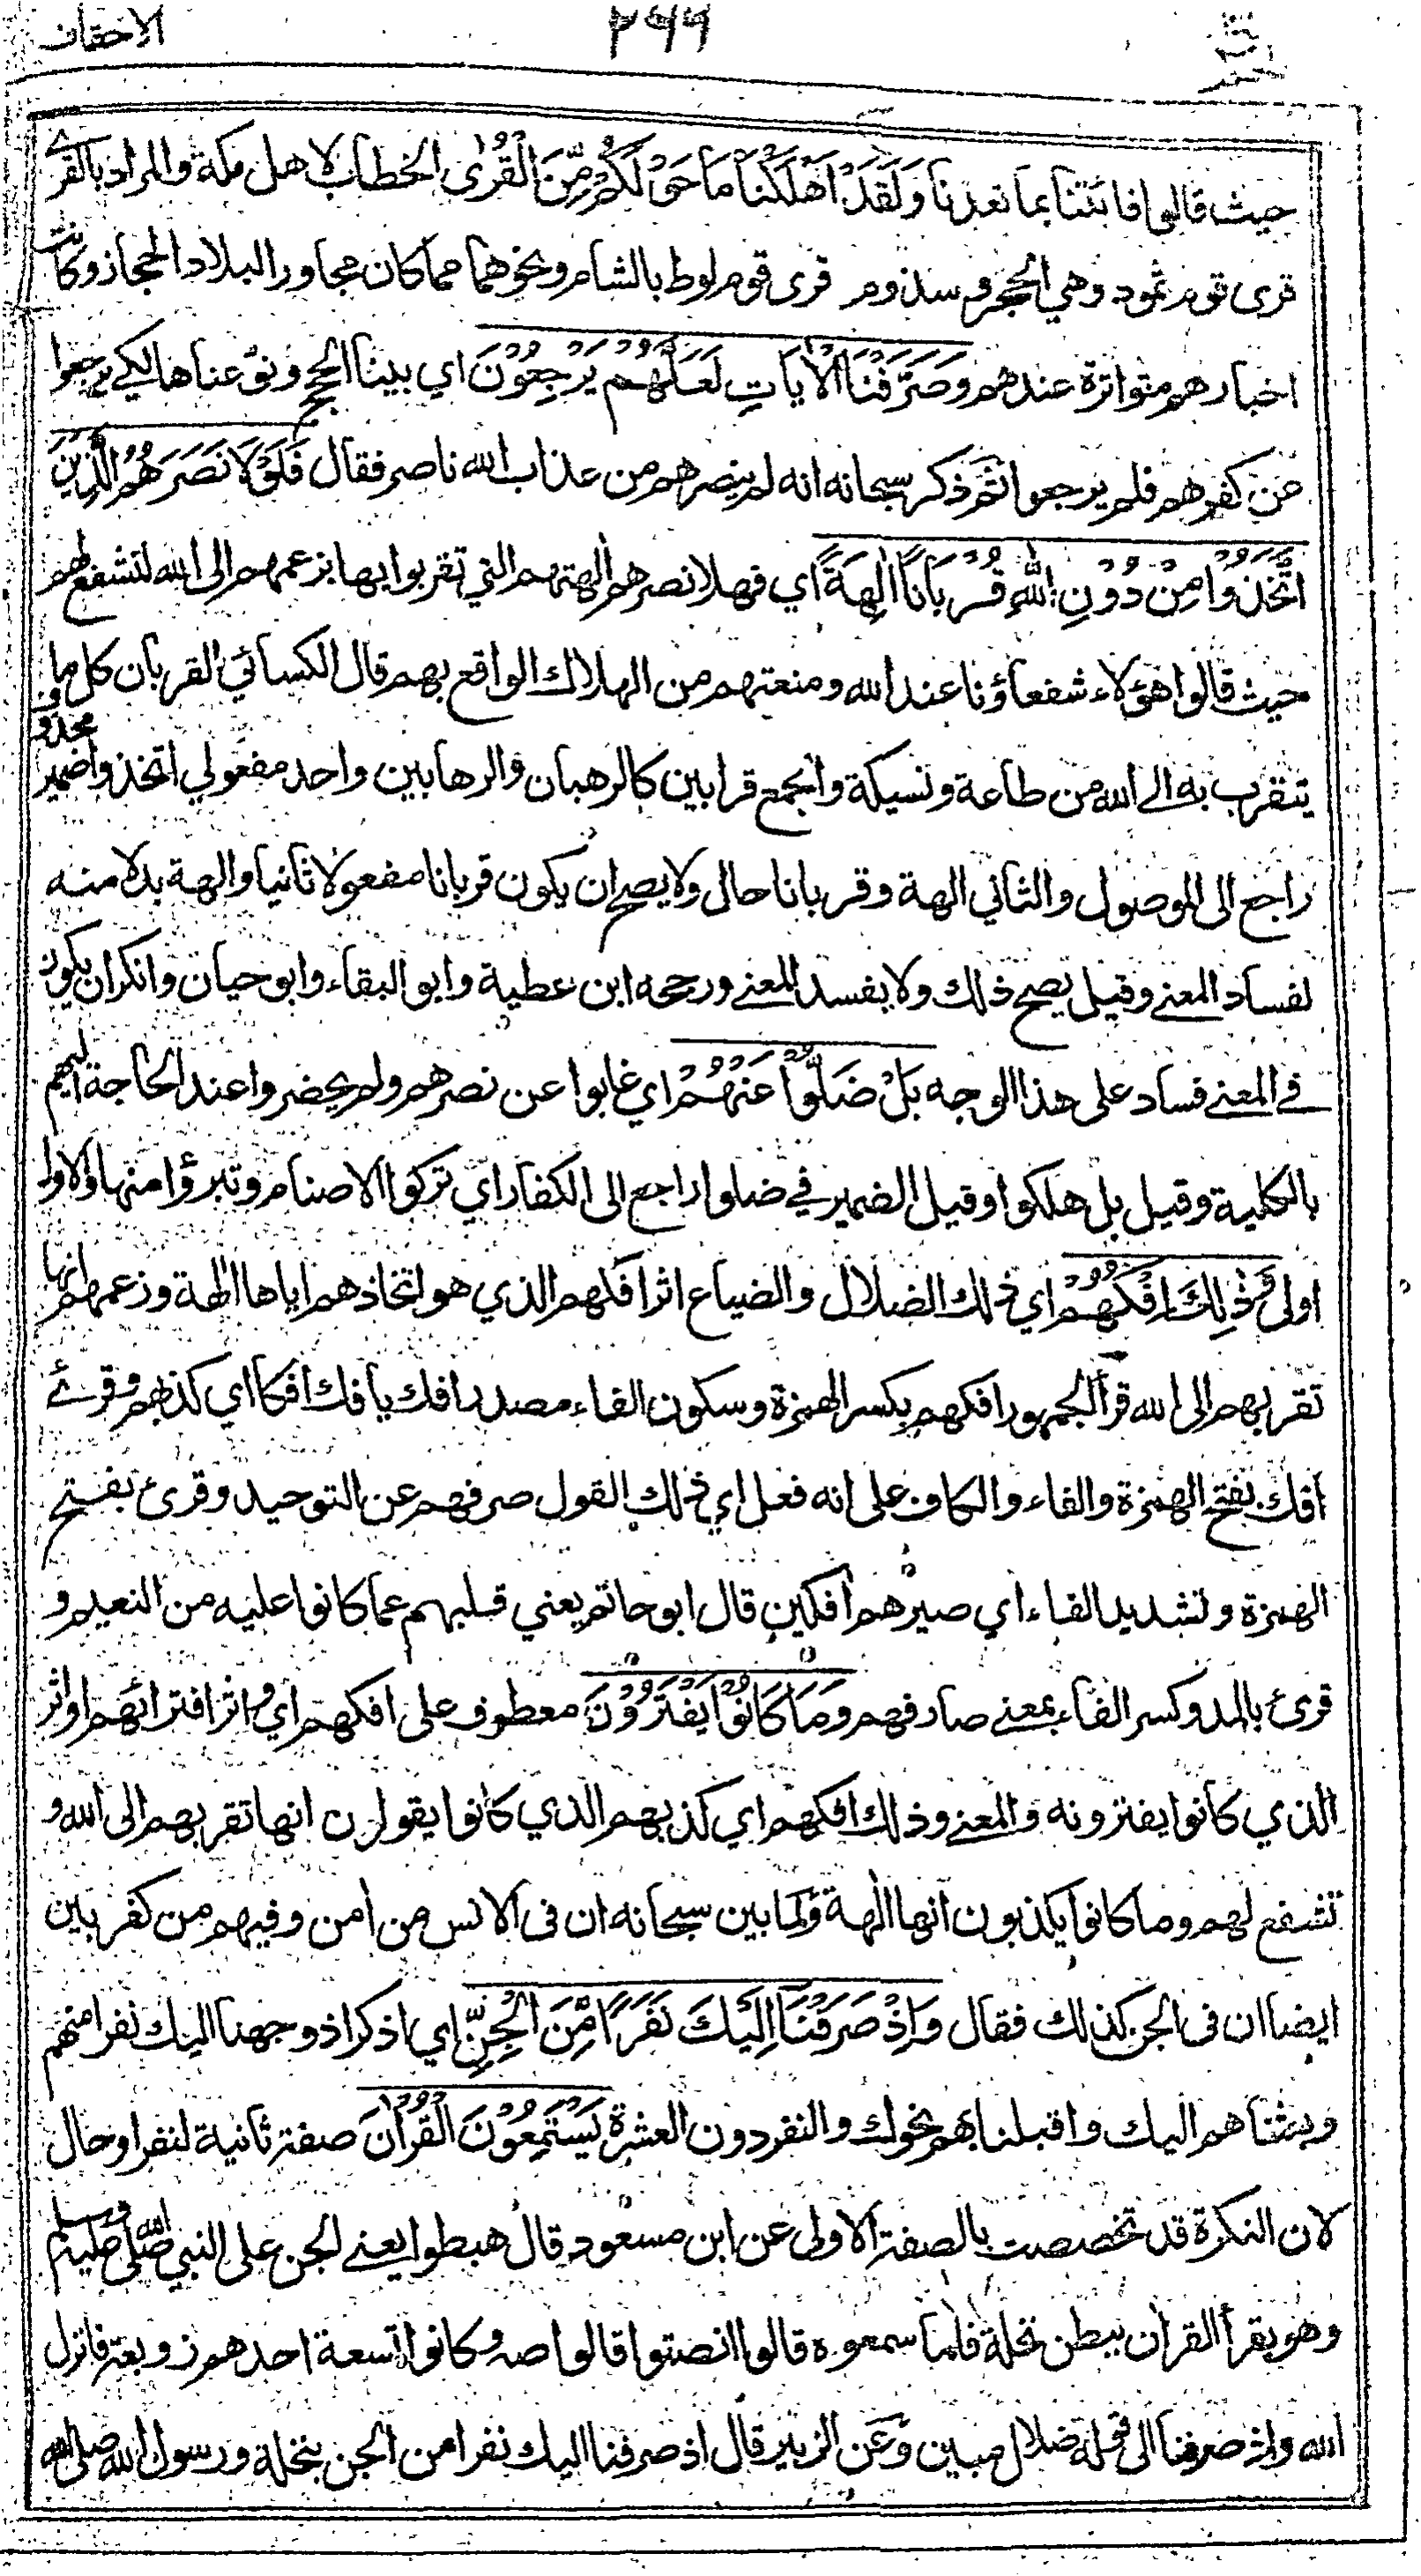 حم
٢٦٦
الاحقاف
حيث قالوا فائتنا بما تعدنا وَلَقَدْ اَهْلَكْنَا مَا حَوْلَكُمْ مِّنَ الْقُرٰى الخطاب لاهل مكة والمراد بالقرے
قرى قوم ثمود وهي الحجر و سذوم قرى قوم لوط بالشام ونحوهما مما كان مجاور البلاد الحجاز وكانت
اخبارهم متواترة عندهم وَصَرَّفْنَا الْاٰيَاتِ لَعَلَّهُمْ يَرْجِعُوْنَ اي بينا الحجج ونوعناها لكے يرجعوا
من كفرهم فلم يرجعوا ثم ذكر سبحانه انه لم ينصرهم من عذاب الله ناصر فقال فَلَوْلَا نَصَرَهُمُ الَّذِيْنَ
اتَّخَذُوْا مِنْ دُوْنِ اللّٰهِ قُرْبَانًا اٰلِهَةً اي فهلا نصرهم الهتهم التي تقربوا بها بزعمهم الى الله لتشفع لهم
حيث قالوا هؤلاء شفعاؤنا عند الله ومنعتهم من الهلاك الواقع بهم قال الكسائي القربان كل ما
يتقرب به الى الله من طاعة ونسيكة والجمع قرابين كالرهبان والرهابين واحد مفعولي اتخذوا ضمير محذوف
راجع الى الموصول والثاني الهة وقربانا حال ولا يصح ان يكون قربانا مفعولا ثانيا والهة بدلا منه
لفساد المعنے وقيل يصح ذلك ولا يفسد المعنے ورجحه ابن عطية وابو البقاء وابو حيان وانكر ان يكون
فے المعنے فساد على هذا الوجه بَلْ ضَلُّوْا عَنْهُمْ اي غابوا عن نصرهم ولم يحضروا عند الحاجة اليهم
بالكلية وقيل بل هلكوا وقيل الضمير في ضلوا راجع الى الكفار اي تركوا الاصنام وتبرؤا منها والاول
اولى وَذٰلِكَ اِفْكُهُمْ اي ذلك الضلال والضياع اثر افكهم الذي هو اتخاذهم اياها الهة وزعمهم انها
تقربهم الى الله قرأ الجمهور افكهم بكسر الهمزة وسكون الفاء مصدر افك يافك افكا اي كذبهم وقرئ
افك بفتح الهمزة والفاء والكاف على انه فعل اي ذلك القول صرفهم عن التوحيد وقرئ بفتح
الهمزة وتشديد الفاء اي صيرهم افكين قال ابو حاتم يعني قلبهم عما كانوا عليه من النعيم و
قرئ بالمد وكسر الفاء بمعنے صارفهم وَمَا كَانُوْا يَفْتَرُوْنَ معطوف على افكهم اي واثر افترائهم او اثر
الذي كانوا يفترونه والمعنے وذلك افكهم اي كذبهم الذي كانوا يقولون انها تقربهم الى الله و
تشفع لهم وما كانوا يكذبون انها الهة ولما بين سبحانه ان فى الانس من امن وفيهم من كفر بين
ايضا ان فى الجن كذلك فقال وَاِذْ صَرَفْنَا اِلَيْكَ نَفَرًا مِّنَ الْجِنِّ اي اذكر اذ وجهنا اليك نفرا منهم
وبعثناهم اليك واقبلنا بهم نحوك والنفر دون العشرة يَسْتَمِعُوْنَ الْقُرْاٰنَ صفة ثانية لنفرا او حال
لان النكرة قد تخصصت بالصفة الاولى عن ابن مسعود قال هبطوا يعنے الجن على النبي صلى الله عليه وسلم
وهو يقرأ القران ببطن نخلة فلما سمعوه قالوا انصتوا قالوا صه وكانوا تسعة احدهم زوبعة فانزل
الله واذ صرفنا الى قوله ضلال مبين وعن الزبير قال اذ صرفنا اليك نفرا من الجن بنخلة ورسول الله صلى الله